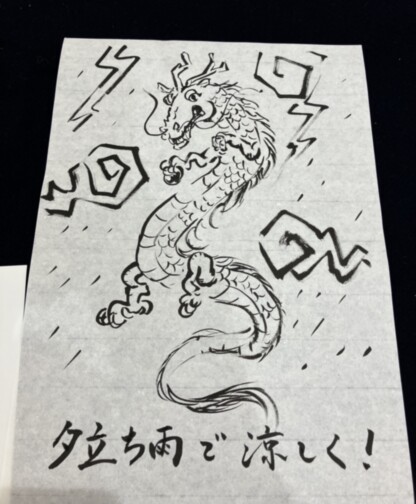 夕立ち雨で涼しく!